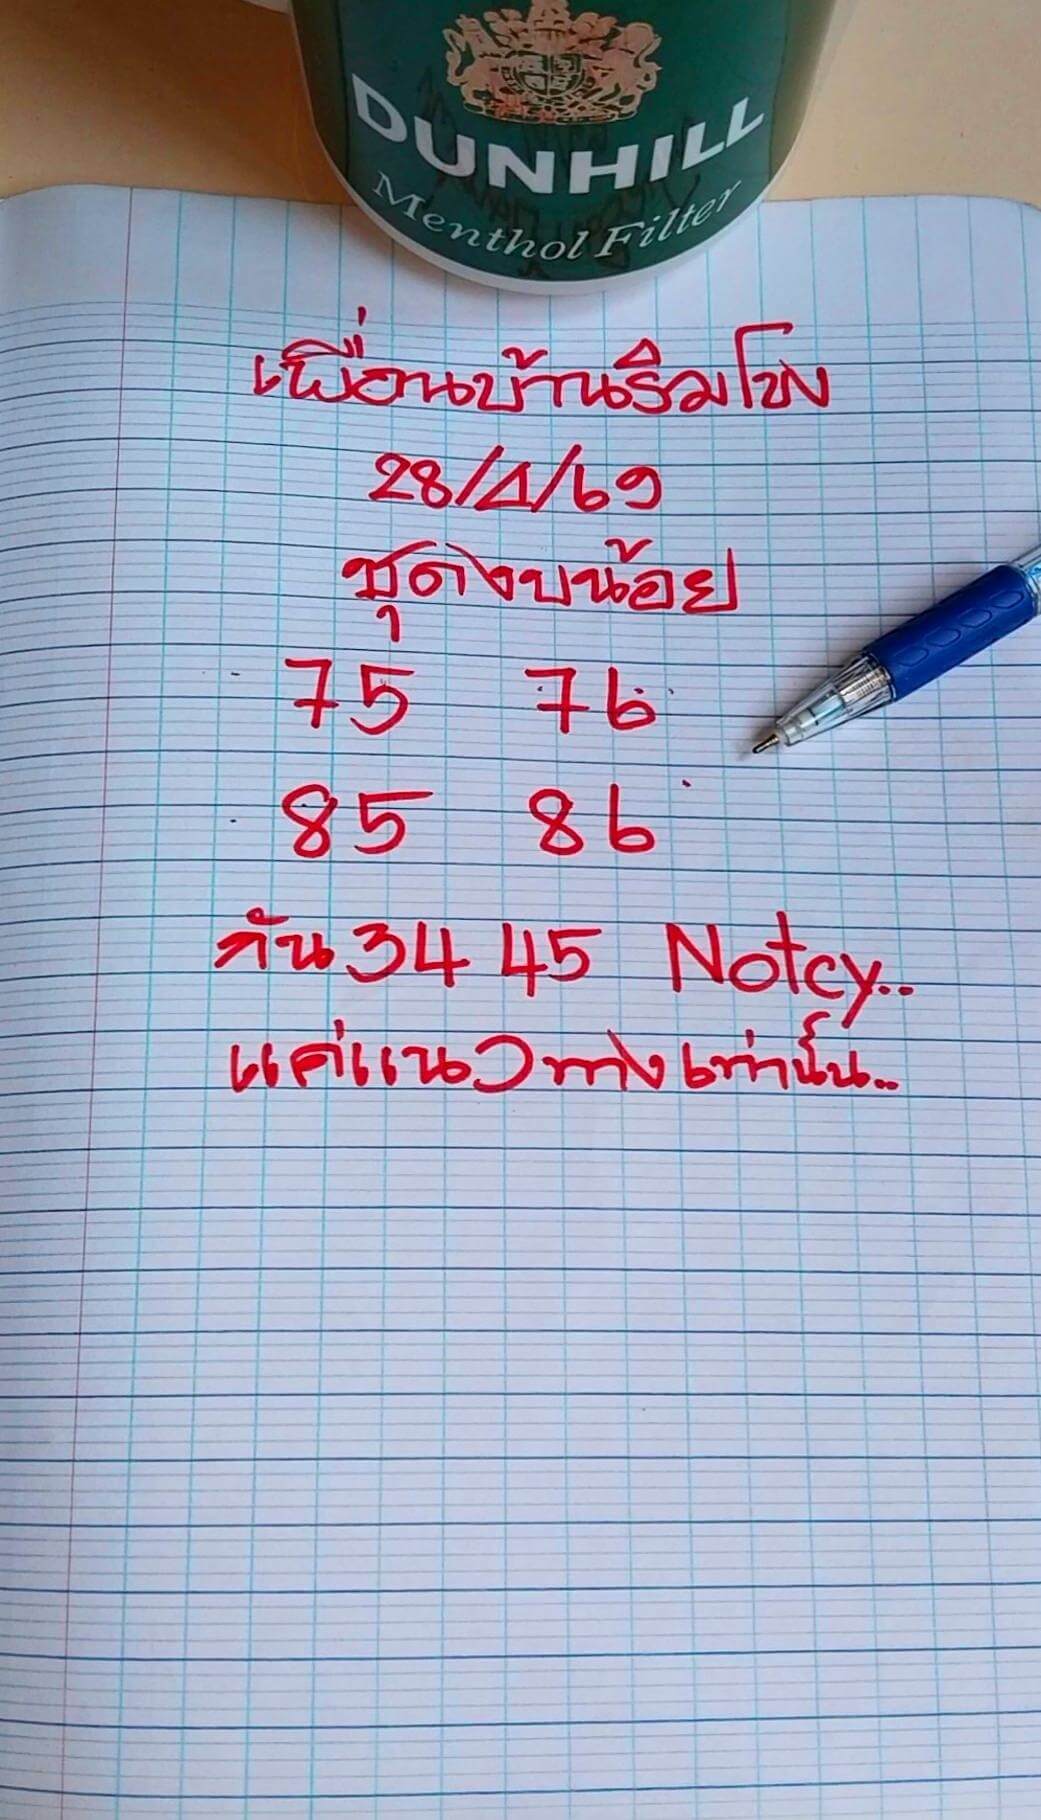 DUNHILL
Menthol Filter
เพื่อนบ้านริมโขง
28/4/69
ชุดงบน้อย
75 76
85 86
กัน 34 45 Notcy..
แค่แนวทางเท่านั้น..